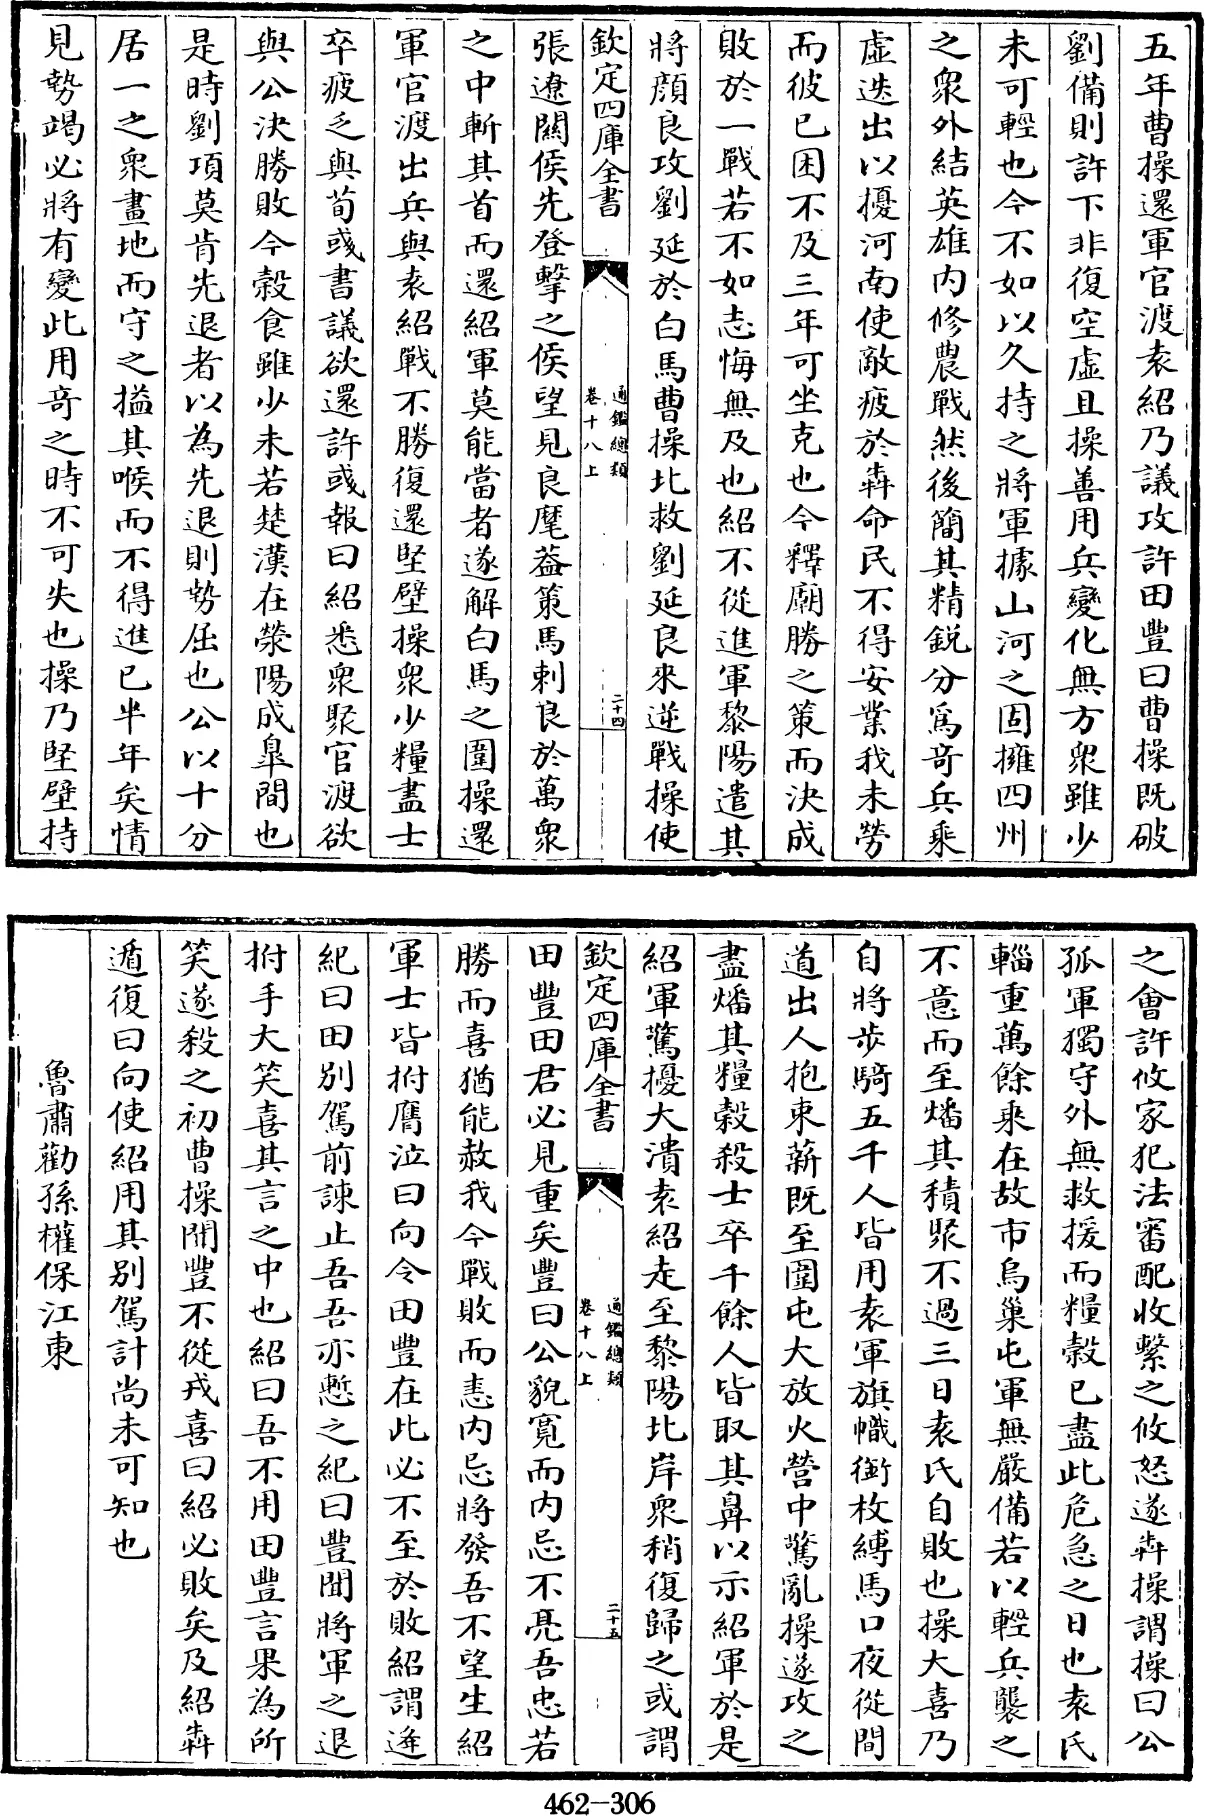 五年曹操還軍官渡袁紹乃議攻許田豐曰曹操既破
劉備則許下非復空虛且操善用兵變化無方衆雖少
未可輕也今不如以久持之將軍據山河之固擁四州
之衆外結英雄内修農戰然後簡其精鋭分為竒兵乘
虛迭出以擾河南使敵疲於奔命民不得安業我未勞
而彼已困不及三年可坐克也今釋廟勝之策而決成
敗於一戰若不如志悔無及也紹不從進軍黎陽遣其
將顔良攻劉延於白馬曹操北救劉延良來逆戰操使
欽定四庫全書
通鑑總類
卷十八上
二十四
張遼關侯先登擊之侯望見良麾葢策馬刺良於萬衆
之中斬其首而還紹軍莫能當者遂解白馬之圍操還
軍官渡出兵與袁紹戰不勝復還堅壁操衆少糧盡士
卒疲乏與荀彧書議欲還許彧報曰紹悉衆聚官渡欲
與公決勝敗今榖食雖少未若楚漢在滎陽成臯間也
是時劉項莫肯先退者以為先退則勢屈也公以十分
居一之衆畫地而守之搤其喉而不得進已半年矣情
見勢竭必將有變此用竒之時不可失也操乃堅壁持
之會許攸家犯法審配收繫之攸怒遂奔操謂操曰公
孤軍獨守外無救援而糧榖已盡此危急之日也袁氏
輜重萬餘乘在故市烏巢屯軍無嚴備若以輕兵襲之
不意而至燔其積聚不過三日袁氏自敗也操大喜乃
自將步騎五千人皆用袁軍旗幟銜枚縛馬口夜從間
道出人抱束薪既至圍屯大放火營中驚亂操遂攻之
盡燔其糧榖殺士卒千餘人皆取其鼻以示紹軍於是
紹軍驚擾大潰袁紹走至黎陽北岸衆稍復歸之或謂
欽定四庫全書
通鑑總類
卷十八上
二十五
田豐田君必見重矣豐曰公貌寬而内忌不亮吾忠若
勝而喜猶能赦我今戰敗而恚内忌將發吾不望生紹
軍士皆拊膺泣曰向令田豐在此必不至於敗紹謂逄
紀曰田别駕前諫止吾吾亦慙之紀曰豐聞將軍之退
拊手大笑喜其言之中也紹曰吾不用田豐言果為所
笑遂殺之初曹操聞豐不從戎喜曰紹必敗矣及紹奔
遁復曰向使紹用其别駕計尚未可知也
魯肅勸孫權保江東
462-306